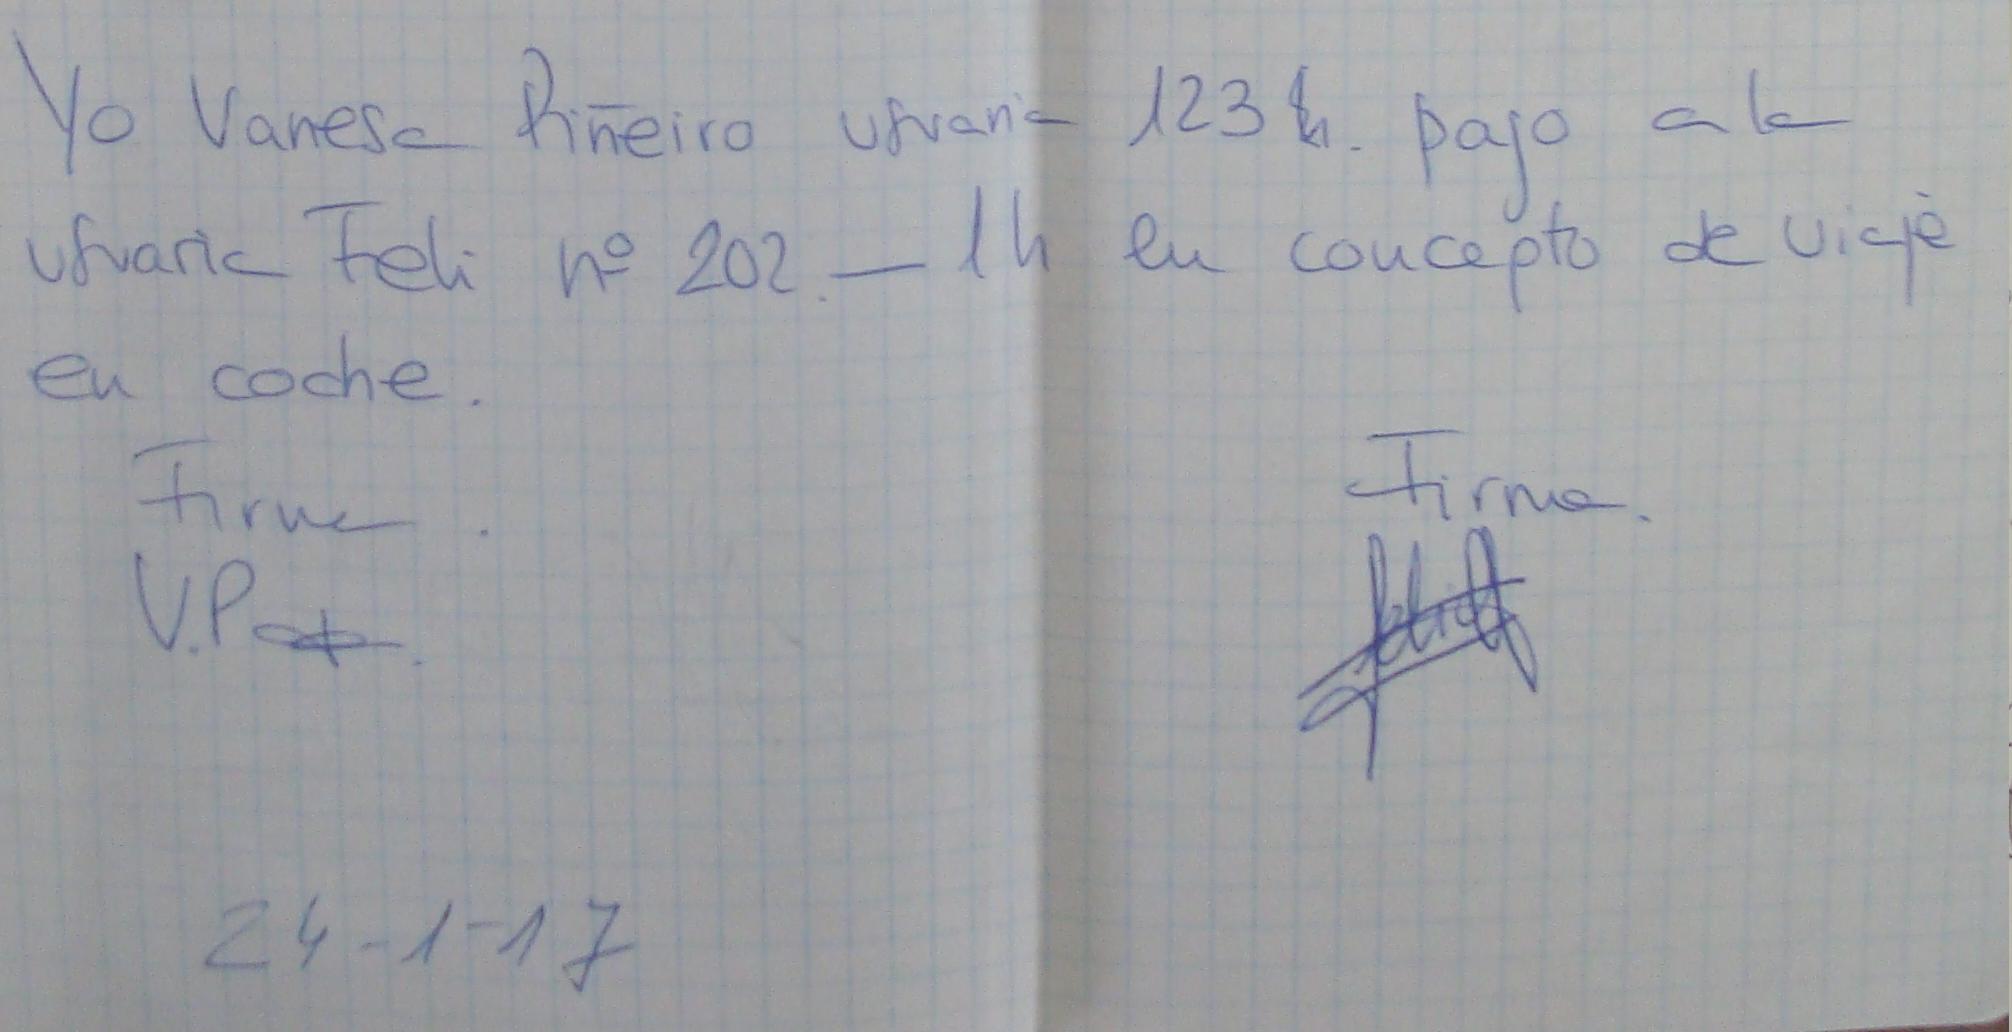 Yo Vanesa Piñeiro usuaria 123 pago a la
usuaria Feli nº 202.— 1h en concepto de viaje
en coche.
Firma. Firma.
V.P.
24-1-17